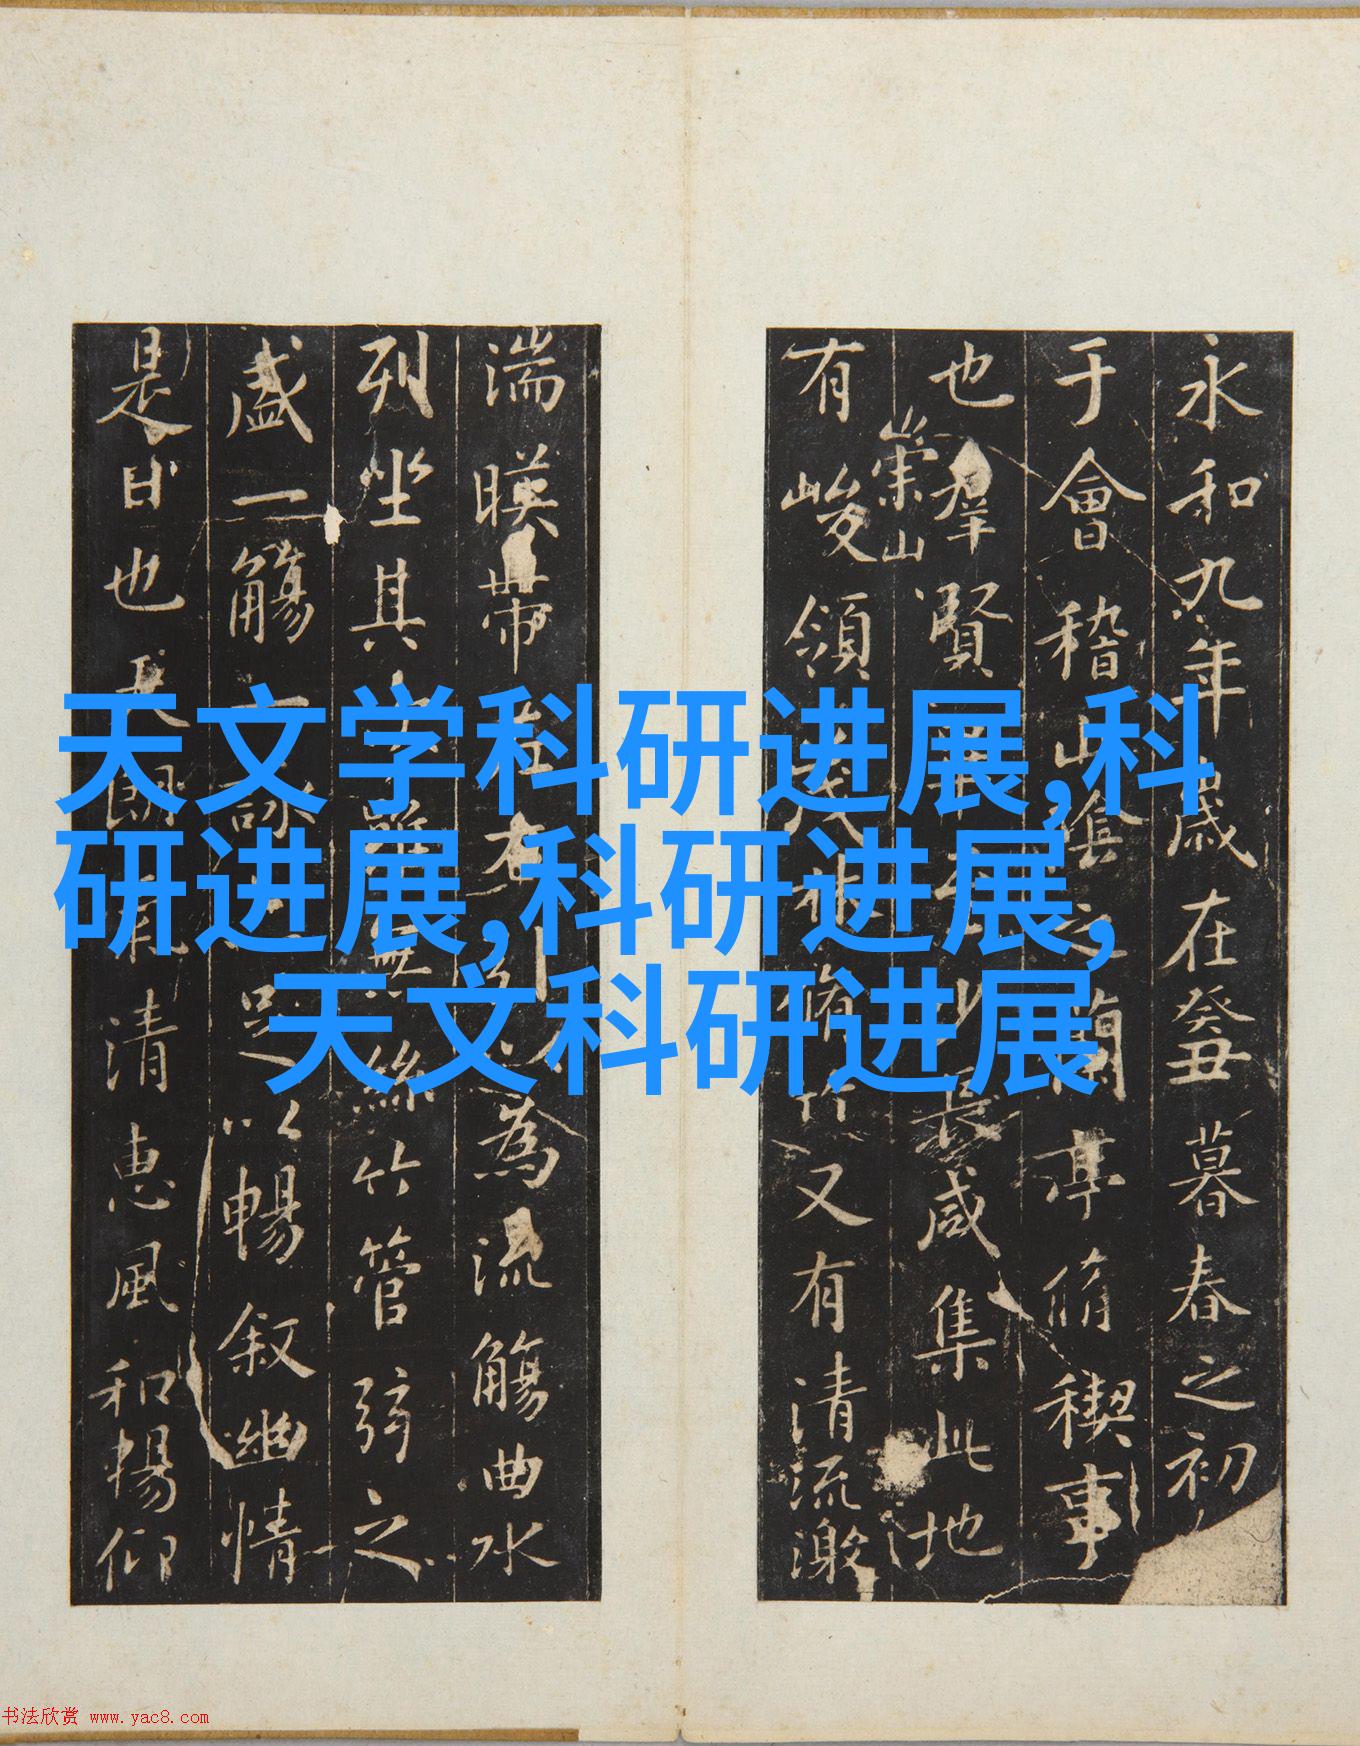 永和九年歲在癸丑暮春之初
于會稽山陰之蘭亭脩稧事
也群賢畢至少長咸集此地
崇山
有峻領茂林脩竹又有清流激
湍暎帶左右引以為流觴曲水
列坐其次雖無絲竹管弦之
盛一觴一詠亦足以暢叙幽情
是日也天朗氣清惠風和暢仰
天文学科研进展,科
研进展,科研进展,
天文科研进展
书法欣赏 www.yac8.com